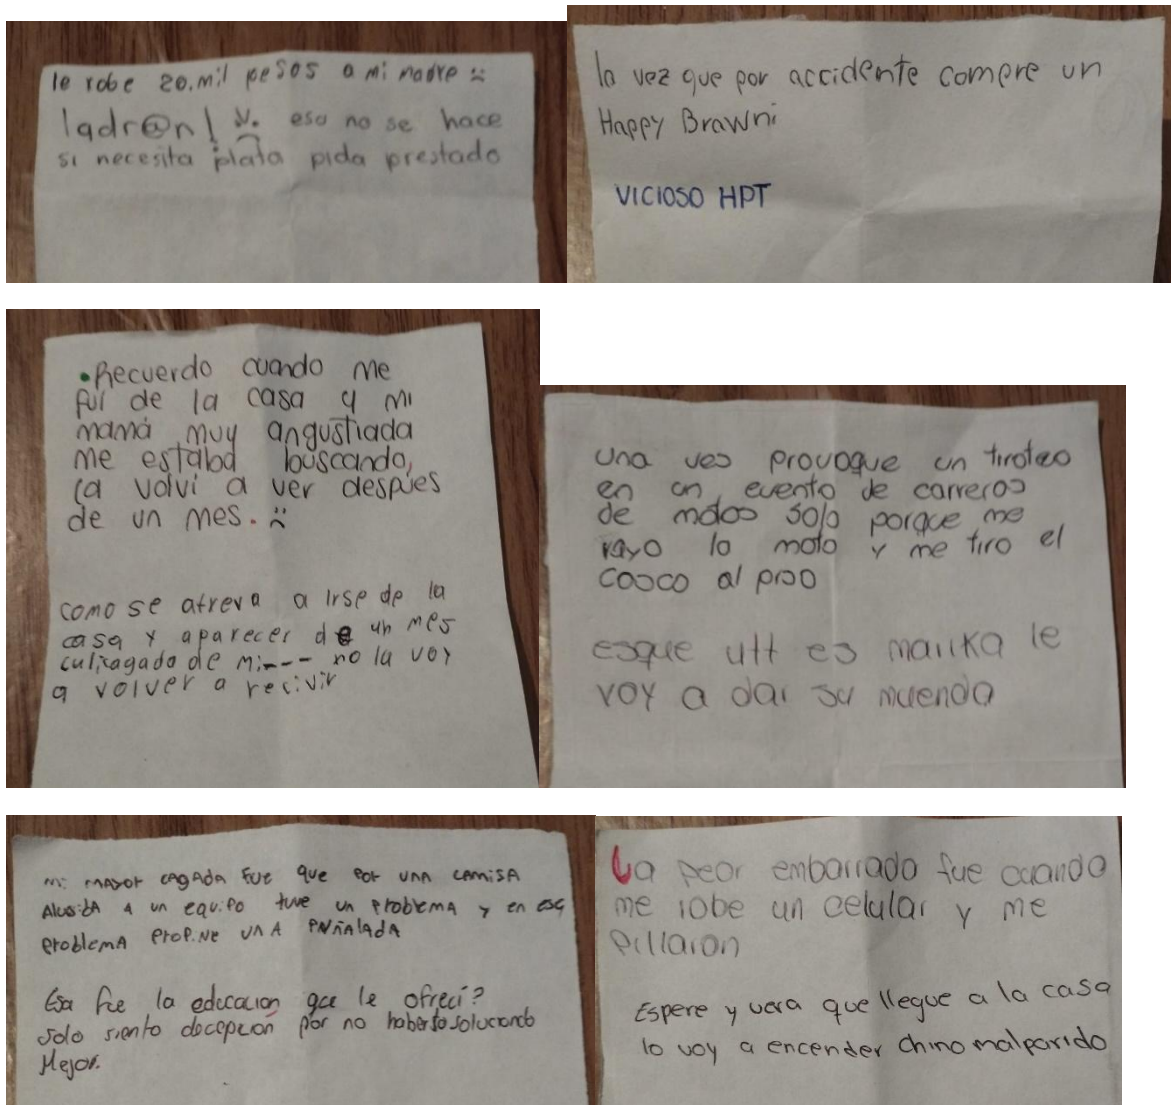 le robe 20.mil pesos a mi madre :(
ladr@n! :( eso no se hace
si necesita plata pida prestado
la vez que por accidente compre un
Happy Brawni
VICIOSO HPT
• Recuerdo cuando me
fui de la casa y mi
mamá muy angustiada
me estaba buscando,
la volvi a ver despues
de un mes. :(
como se atreva a irse de la
casa y aparecer de un mes
culicagado de mi--- no la voy
a volver a recivir
una ves provoque un tiroteo
en un evento de carreras
de motos solo porque me
rayo la moto y me tiro el
casco al piso
esque utt es marika le
voy a dar su muenda
mi mayor cagada fue que por una camisa
Alusiba a un equipo tuve un problema y en ese
problema propine una puñalada
Esa fue la educacion que le ofreci?
Solo siento decepcion por no haberlo solucionado
Mejor.
La peor embarrada fue cuando
me robe un celular y me
pillaron
Espere y vera que llegue a la casa
lo voy a encender chino malparido